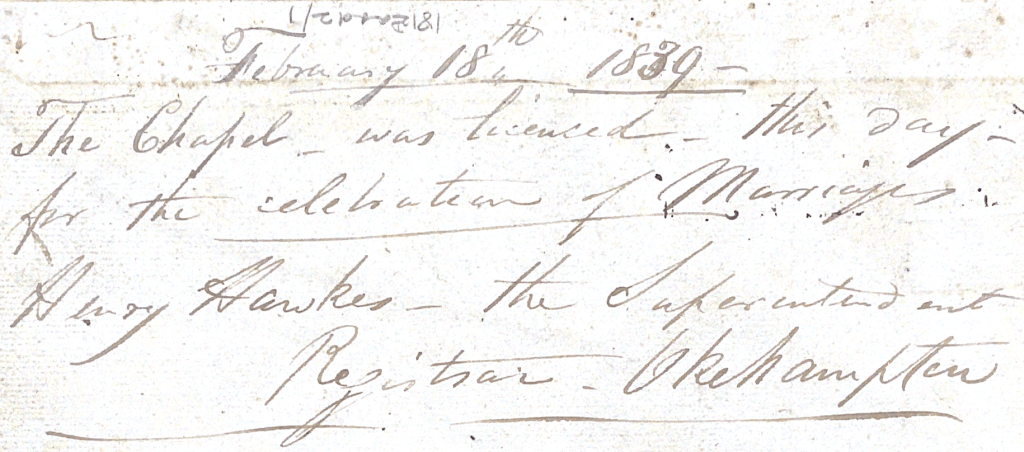 February 18th 1839 -
The Chapel - was licensed - this day -
for the celebration of Marriages
Henry Hawkes - the Superintendent
Registrar - Okehampton